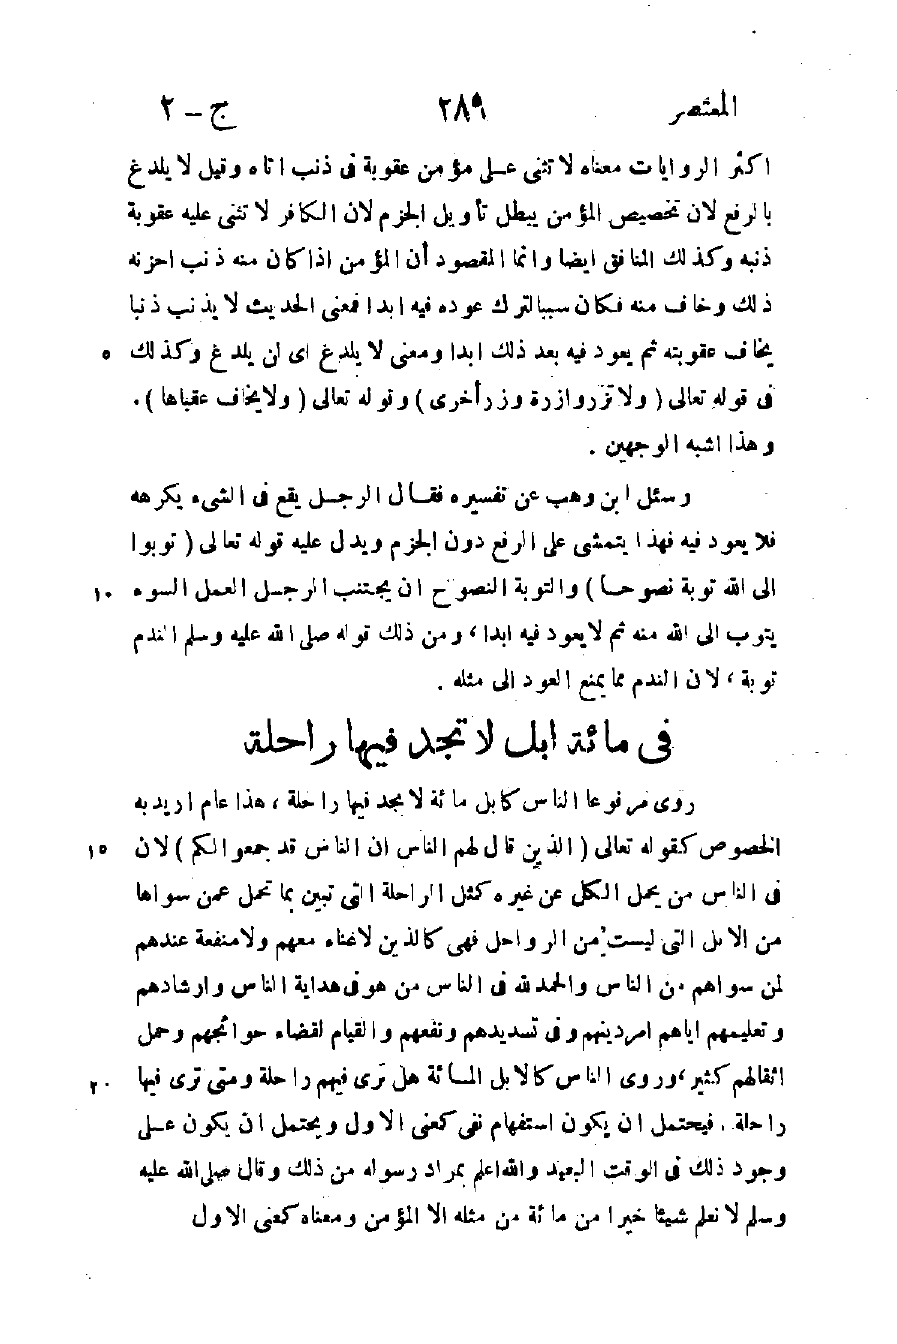 المعتصر ٢٨٩ ج - ٢
اكثر الروايات معناه لا تثنى على مؤمن عقوبة فى ذنب اتاه وقيل لا يلدغ
بالرفع لان تخصيص المؤمن يبطل تأويل الجزم لان الكافر لا تثنى عليه عقوبة
ذنبه وكذلك المنافق ايضا وانما المقصود أن المؤمن اذا كان منه ذنب احزنه
ذلك وخاف منه فكان سببا لترك عوده فيه ابدا فمعنى الحديث لا يذنب ذنبا
يخاف عقوبته ثم يعود فيه بعد ذلك ابدا ومعنى لا يلدغ اى لن يلدغ وكذلك ٥
فى قوله تعالى ( ولا تزر وازرة وزر أخرى ) وقوله تعالى ( ولا يخاف عقباها ) .
وهذا اشبه الوجهين .
وسئل ابن وهب عن تفسيره فقال الرجل يقع فى الشىء يكرهه
فلا يعود فيه فهذا يتمشى على الرفع دون الجزم ويدل عليه قوله تعالى ( توبوا
الى الله توبة نصوحا ) والتوبة النصوح ان يجتنب الرجل العمل السوء ١٠
يتوب الى الله منه ثم لا يعود فيه ابدا ، ومن ذلك قوله صلى الله عليه وسلم الندم
توبة ، لان الندم مما يمنع العود الى مثله .
فى مائة ابل لا تجد فيها راحلة
روى مرفوعا الناس كابل مائة لا يجد فيها راحلة ، هذا عام اريد به
الخصوص كقوله تعالى ( الذين قال لهم الناس ان الناس قد جمعوا لكم ) لان ١٥
فى الناس من يحمل الكل عن غيره كمثل الراحلة التى تبين بما تحمل عمن سواها
من الابل التى ليست من الرواحل فهى كالذين لا غناء معهم ولا منفعة عندهم
لمن سواهم من الناس والحمد لله فى الناس من هو فى هداية الناس وارشادهم
وتعليمهم اياهم امر دينهم وفى تسديدهم ونفعهم والقيام لقضاء حوائجهم وحمل
اثقالهم كثير ، وروى الناس كالابل المائة هل ترى فيهم راحلة ومتى ترى فيها ٢٠
راحلة . فيحتمل ان يكون استفهام نفى كمعنى الاول ويحتمل ان يكون على
وجود ذلك فى الوقت البعيد والله اعلم بمراد رسوله من ذلك وقال صلى الله عليه
وسلم لا نعلم شيئا خيرا من مائة من مثله الا المؤمن ومعناه كمعنى الاول